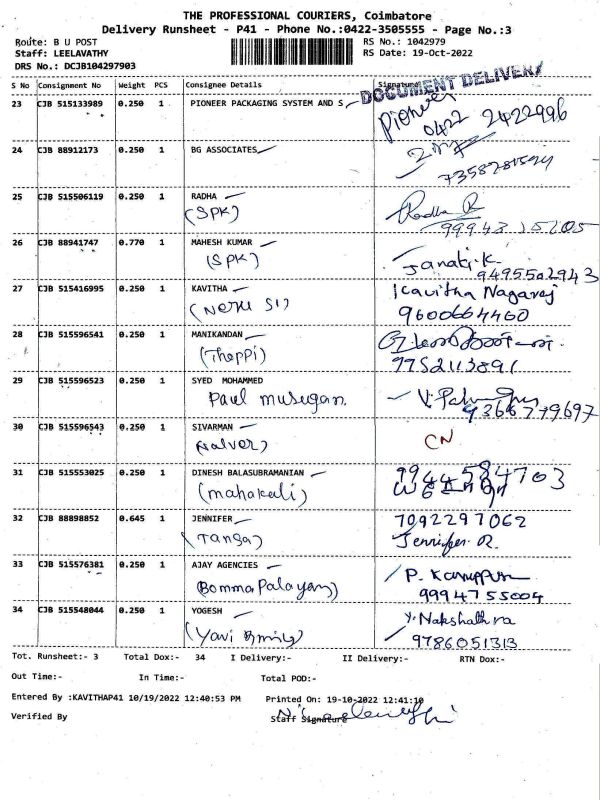 THE PROFESSIONAL COURIERS, Coimbatore
Delivery Runsheet - P41 - Phone No.:0422-3505555 - Page No.:3
Route: B U POST RS No.: 1042979
Staff: LEELAVATHY RS Date: 19-Oct-2022
DRS No.: DCJB104297903
S No Consignment No Weight PCS Consignee Details Signature
DOCUMENT DELIVERY
23 CJB 515133989 0.250 1 PIONEER PACKAGING SYSTEM AND S
Pioneer
0422 2422996
24 CJB 88912173 0.250 1 BG ASSOCIATES
25 CJB 515506119 0.250 1 RADHA
(SPK) Radha R
26 CJB 88941747 0.770 1 MAHESH KUMAR
(SPK) Janaki.K
9495502943
27 CJB 515416995 0.250 1 KAVITHA Kavitha Nagaraj
9600664460
28 CJB 515596541 0.250 1 MANIKANDAN
(Theppi) 9752113891
29 CJB 515596523 0.250 1 SYED MOHAMMED
Paul musugan.
30 CJB 515596543 0.250 1 SIVARMAN
CN
31 CJB 515553025 0.250 1 DINESH BALASUBRAMANIAN 9944584703
(mahakali)
32 CJB 88898852 0.645 1 JENNIFER 7092297062
(Tanga) Jennifer R.
33 CJB 515576381 0.250 1 AJAY AGENCIES P. Karuppu
(Bommapalayam) 9994755004
34 CJB 515548044 0.250 1 YOGESH Y. Nakshathra
9786051313
Tot. Runsheet:- 3 Total Dox:- 34 I Delivery:- II Delivery:- RTN Dox:-
Out Time:- In Time:- Total POD:-
Entered By :KAVITHAP41 10/19/2022 12:40:53 PM Printed On: 19-10-2022 12:41:10
Verified By Staff Signature